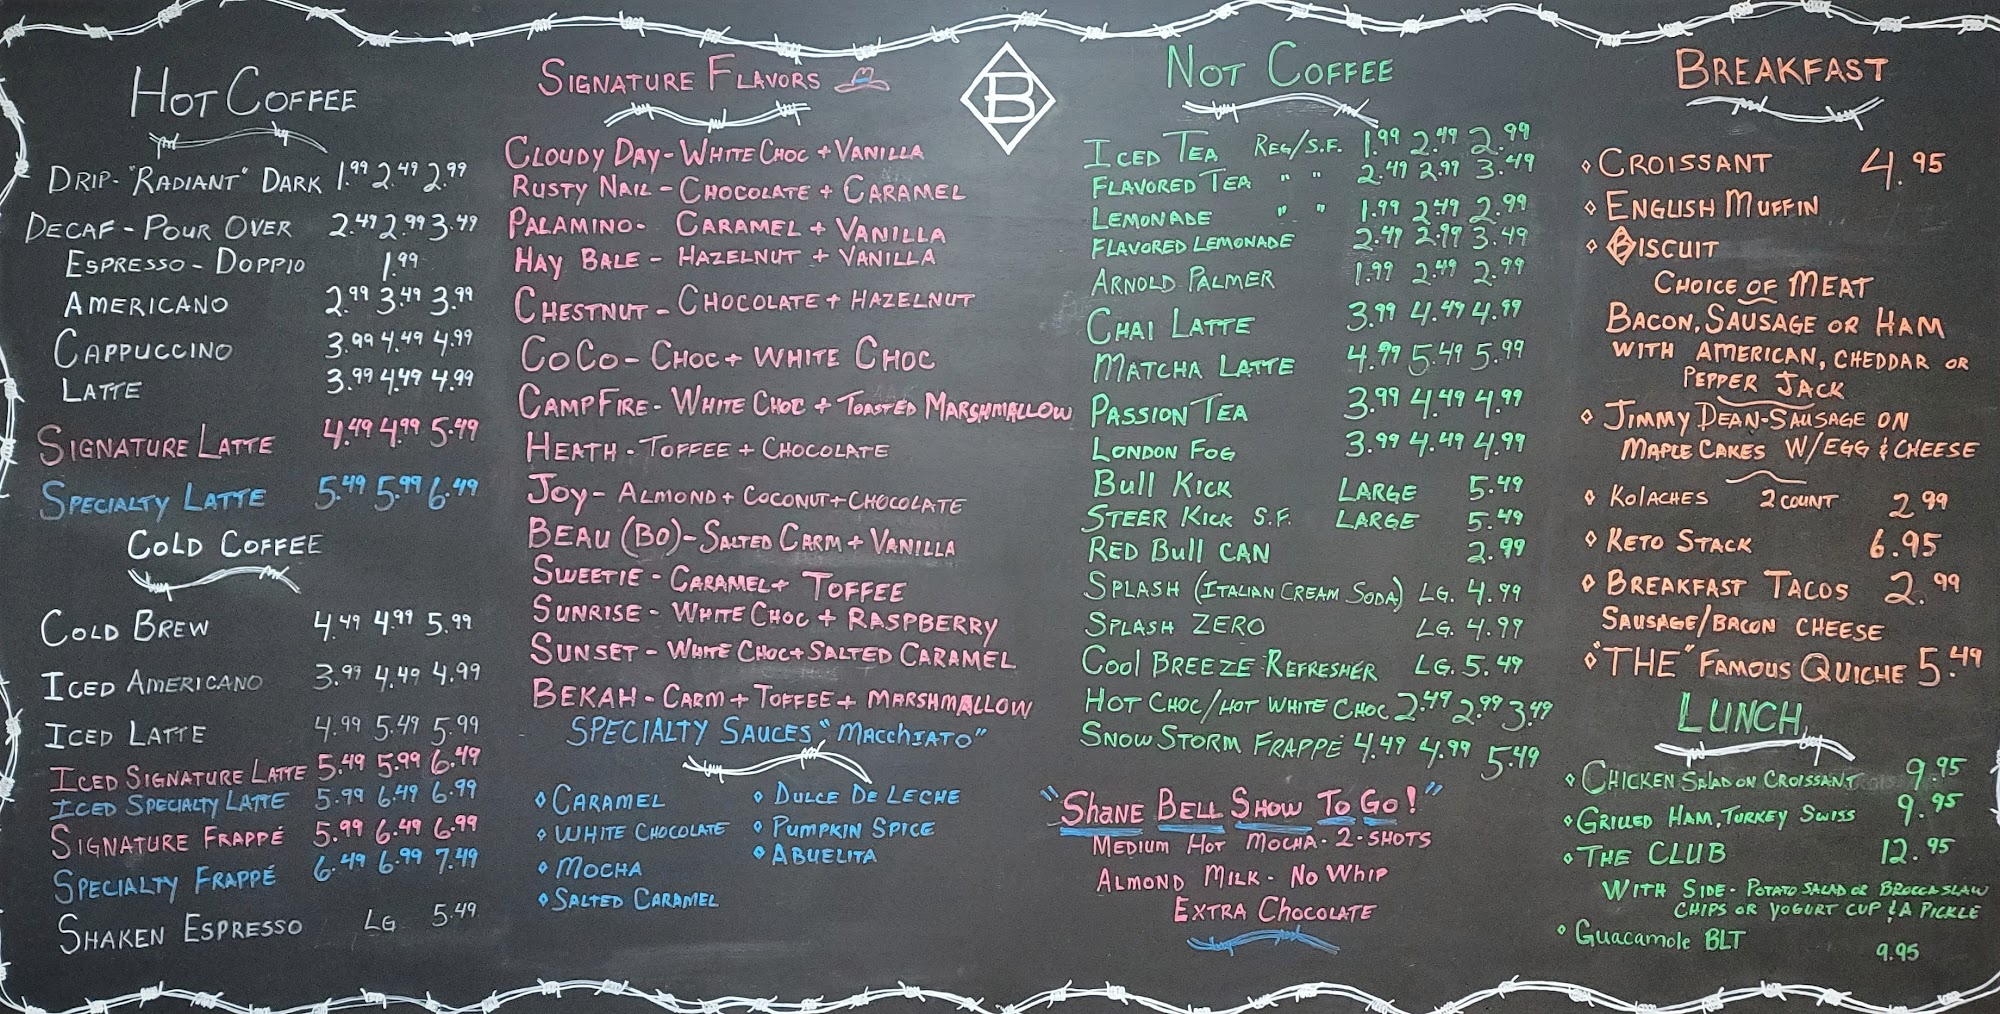 HOT COFFEE
DRIP - "RADIANT" DARK 1.99 2.49 2.99
DECAF - POUR OVER 2.49 2.99 3.49
ESPRESSO - DOPPIO 1.99
AMERICANO 2.99 3.49 3.99
CAPPUCCINO 3.99 4.49 4.99
LATTE 3.99 4.49 4.99
SIGNATURE LATTE 4.49 4.99 5.49
SPECIALTY LATTE 5.49 5.99 6.49
COLD COFFEE
COLD BREW 4.49 4.99 5.99
ICED AMERICANO 3.99 4.49 4.99
ICED LATTE 4.99 5.49 5.99
ICED SIGNATURE LATTE 5.49 5.99 6.49
ICED SPECIALTY LATTE 5.99 6.49 6.99
SIGNATURE FRAPPÉ 5.99 6.49 6.99
SPECIALTY FRAPPÉ 6.49 6.99 7.49
SHAKEN ESPRESSO LG 5.49
SIGNATURE FLAVORS
CLOUDY DAY - WHITE CHOC + VANILLA
RUSTY NAIL - CHOCOLATE + CARAMEL
PALAMINO - CARAMEL + VANILLA
HAY BALE - HAZELNUT + VANILLA
CHESTNUT - CHOCOLATE + HAZELNUT
COCO - CHOC + WHITE CHOC
CAMPFIRE - WHITE CHOC + TOASTED MARSHMALLOW
HEATH - TOFFEE + CHOCOLATE
JOY - ALMOND + COCONUT + CHOCOLATE
BEAU (BO) - SALTED CARM + VANILLA
SWEETIE - CARAMEL + TOFFEE
SUNRISE - WHITE CHOC + RASPBERRY
SUNSET - WHITE CHOC + SALTED CARAMEL
BEKAH - CARM + TOFFEE + MARSHMALLOW
SPECIALTY SAUCES "MACCHIATO"
CARAMEL
WHITE CHOCOLATE
MOCHA
SALTED CARAMEL
DULCE DE LECHE
PUMPKIN SPICE
ABUELITA
B
NOT COFFEE
ICED TEA REG/S.F. 1.99 2.49 2.99
FLAVORED TEA " " 2.49 2.99 3.49
LEMONADE " " 1.99 2.49 2.99
FLAVORED LEMONADE 2.49 2.99 3.49
ARNOLD PALMER 1.99 2.49 2.99
CHAI LATTE 3.99 4.49 4.99
MATCHA LATTE 4.99 5.49 5.99
PASSION TEA 3.99 4.49 4.99
LONDON FOG 3.99 4.49 4.99
BULL KICK LARGE 5.49
STEER KICK S.F. LARGE 5.49
RED BULL CAN 2.99
SPLASH (ITALIAN CREAM SODA) LG. 4.99
SPLASH ZERO LG. 4.99
COOL BREEZE REFRESHER LG. 5.49
HOT CHOC/HOT WHITE CHOC 2.49 2.99 3.49
SNOW STORM FRAPPÉ 4.49 4.99 5.49
"SHANE BELL SHOW TO GO!"
MEDIUM HOT MOCHA - 2 - SHOTS
ALMOND MILK - NO WHIP
EXTRA CHOCOLATE
BREAKFAST
CROISSANT 4.95
ENGLISH MUFFIN
BISCUIT
CHOICE OF MEAT
BACON, SAUSAGE OR HAM
WITH AMERICAN, CHEDDAR OR
PEPPER JACK
JIMMY DEAN - SAUSAGE ON
MAPLE CAKES W/EGG & CHEESE
KOLACHES 2 COUNT 2.99
KETO STACK 6.95
BREAKFAST TACOS 2.99
SAUSAGE/BACON CHEESE
"THE" FAMOUS QUICHE 5.49
LUNCH
CHICKEN SALAD ON CROISSANT 9.95
GRILLED HAM, TURKEY SWISS 9.95
THE CLUB 12.95
WITH SIDE - POTATO SALAD OR BROCCASLAW
CHIPS OR YOGURT CUP & A PICKLE
GUACAMOLE BLT 9.95